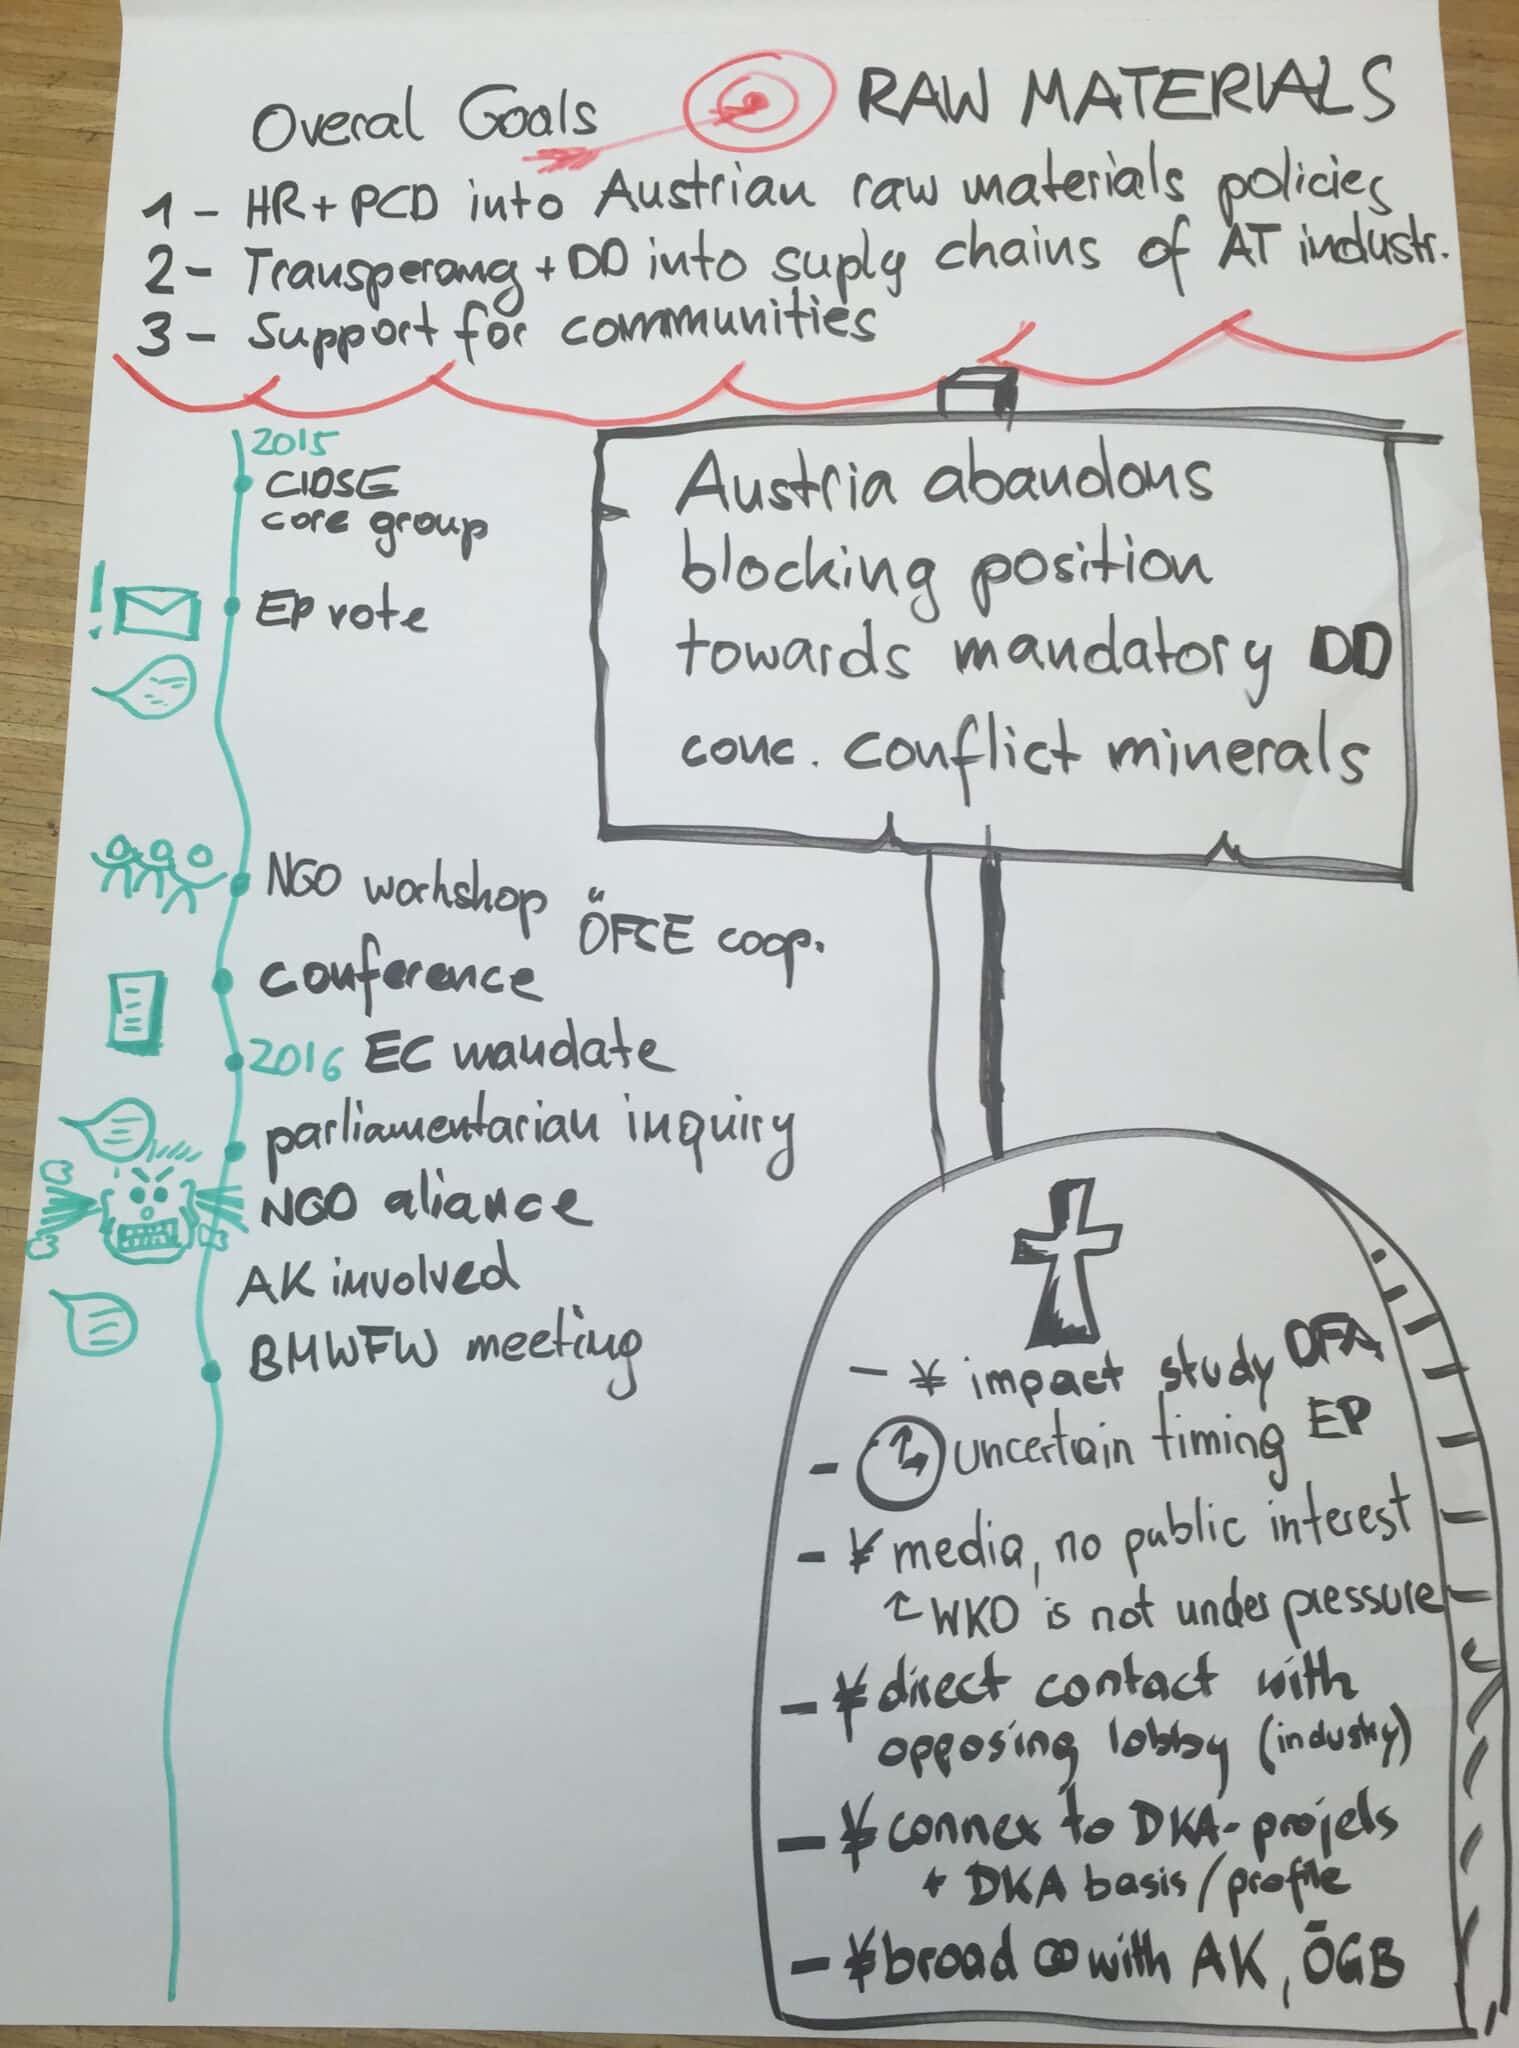 Overal Goals
RAW MATERIALS
1 - HR + PCD into Austrian raw materials policies
2 - Transperang + DD into suply chains of AT industr.
3 - Support for communities
2015
CIDSE
core group
! EP vote
NGO workshop
ÖFSE coop.
conference
2016 EC mandate
parliamentarian inquiry
NGO aliance
AK involved
BMWFW meeting
Austria abandons
blocking position
towards mandatory DD
conc. conflict minerals
- ¥ impact study DFA
- uncertain timing EP
- ¥ media, no public interest
WKO is not under pressure
- ¥ direct contact with
opposing lobby (industry)
- ¥ connex to DKA-projets
+ DKA basis/profile
- ¥ broad ∞ with AK, ÖGB